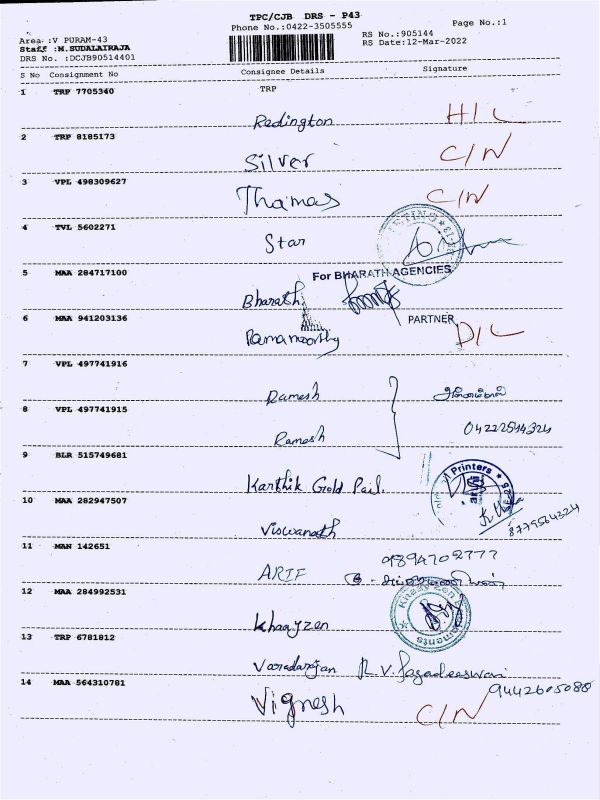 TPC/CJB DRS - P43
Phone No.:0422-3505555
Page No.:1
Area :V PURAM-43
RS No.:905144
Staff :M.SUDALAIRAJA
RS Date:12-Mar-2022
DRS No. :DCJB90514401
S No Consignment No Consignee Details Signature
1 TRP 7705340 TRP
Redington H/L
2 TRP 8185173
Silver C/N
3 VPL 498309627
Thamas C/N
4 TVL 5602271
Star
5 MAA 284717100
For BHARATH AGENCIES
Bharath
6 MAA 941203136
PARTNER
Ramamoorthy D/L
7 VPL 497741916
Ramesh
8 VPL 497741915
Ramesh
9 BLR 515749681
Printers
Karthik Gold
10 MAA 282947507
8779564324
Viswanath
11 MAN 142651
9894708777
ARIF
12 MAA 284992531
Khaayzen
Khaayzen
13 TRP 6781812
Varadarajan R.V. Jagadeeswari
14 MAA 564310781
9442605088
Vignesh C/N